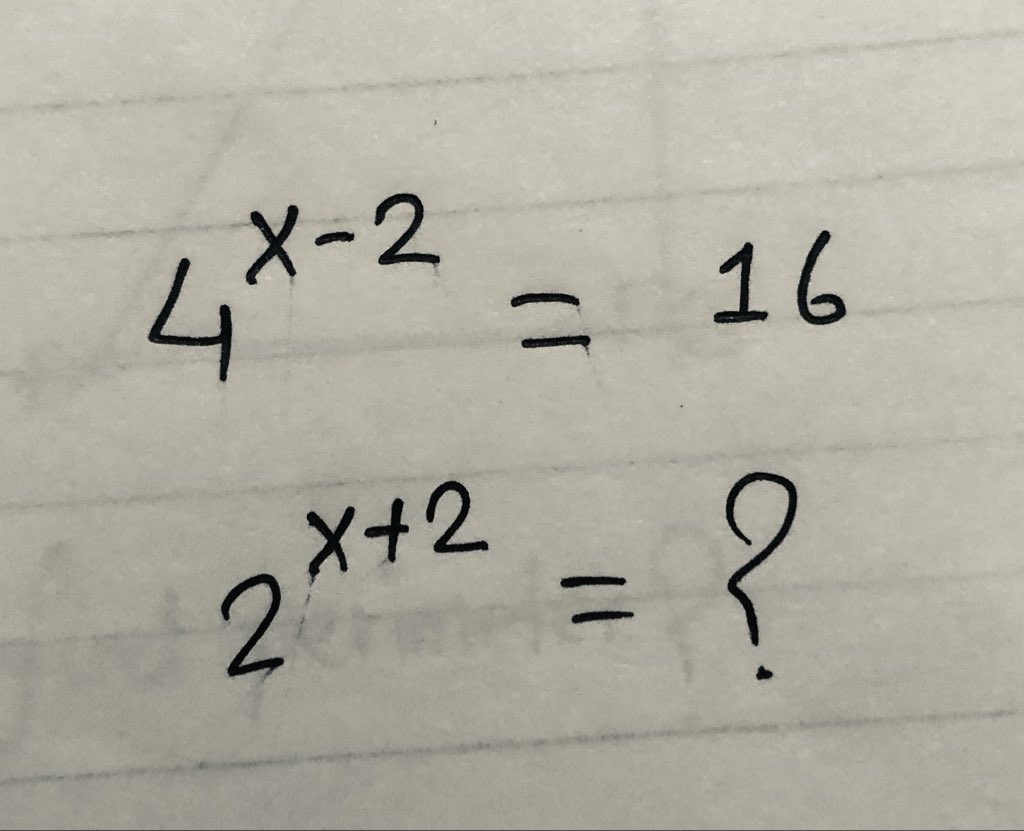 4^{x-2} = 16
2^{x+2} = ?